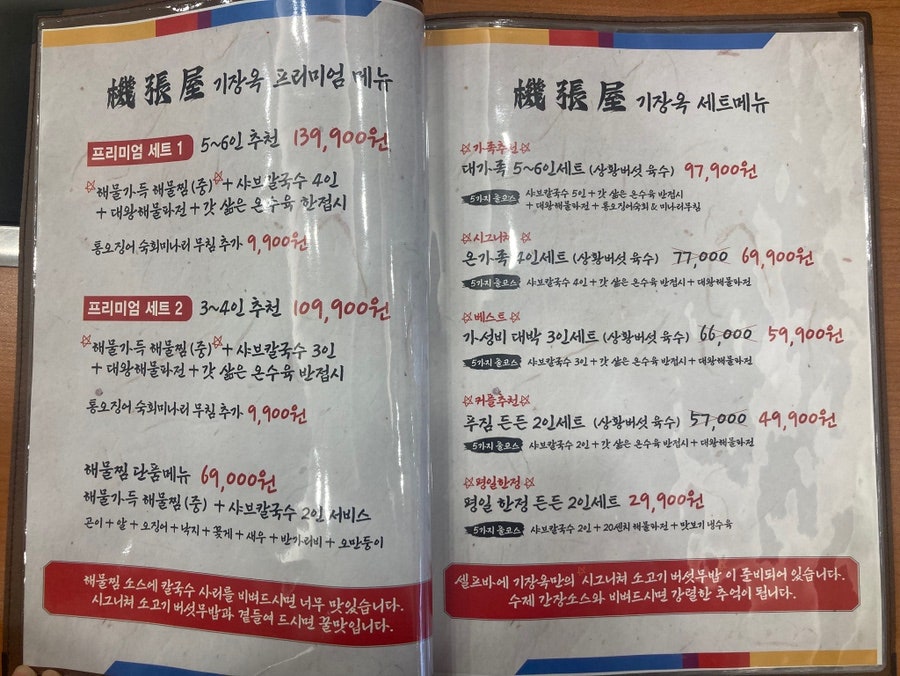 機張屋 기장옥 프리미엄 메뉴
프리미엄 세트 1 5~6인 추천 139,900원
해물가득 해물찜(중) + 샤브칼국수 4인
+ 대왕해물파전 + 갓 삶은 온수육 한접시
통오징어 숙회미나리 무침 추가 9,900원
프리미엄 세트 2 3~4인 추천 109,900원
해물가득 해물찜(중) + 샤브칼국수 3인
+ 대왕해물파전 + 갓 삶은 온수육 반접시
통오징어 숙회미나리 무침 추가 9,900원
해물찜 단품메뉴 69,000원
해물가득 해물찜(중) + 샤브칼국수 2인 서비스
곤이 + 알 + 오징어 + 낙지 + 꽃게 + 새우 + 반가리비 + 오만둥이
해물찜 소스에 칼국수 사리를 비벼드시면 너무 맛있습니다.
시그니쳐 소고기 버섯무밥과 곁들여 드시면 꿀맛입니다.
機張屋 기장옥 세트메뉴
가족추천
대가족 5~6인세트 (상황버섯 육수) 97,900원
5가지 풀코스 샤브칼국수 5인 + 갓 삶은 온수육 반접시
+ 대왕해물파전 + 통오징어숙회 & 미나리무침
시그니쳐
온가족 4인세트 (상황버섯 육수) 77,000 69,900원
5가지 풀코스 샤브칼국수 4인 + 갓 삶은 온수육 반접시 + 대왕해물파전
베스트
가성비 대박 3인세트 (상황버섯 육수) 66,000 59,900원
5가지 풀코스 샤브칼국수 3인 + 갓 삶은 온수육 반접시 + 대왕해물파전
커플추천
푸짐 든든 2인세트 (상황버섯 육수) 57,000 49,900원
5가지 풀코스 샤브칼국수 2인 + 갓 삶은 온수육 반접시 + 대왕해물파전
평일한정
평일 한정 든든 2인세트 29,900원
5가지 풀코스 샤브칼국수 2인 + 20센치 해물파전 + 맛보기 냉수육
셀프바에 기장옥만의 시그니쳐 소고기 버섯무밥 이 준비되어 있습니다.
수제 간장소스와 비벼드시면 강렬한 추억이 됩니다.